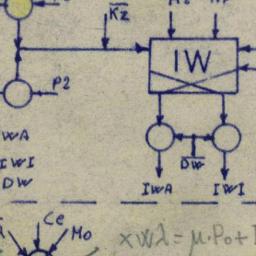 Kz
IW
P2
WA
IWI
DW
DW
IWA IWI
Ce
Mo
xwλ=μ·Po+